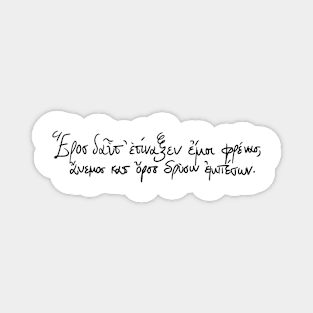 Ἔροσ δαὖτ' ἐτίναξεν ἔμοι φρένας,
ἄνεμος κατ ὄροσ δρύσιν ἐμπέσων.